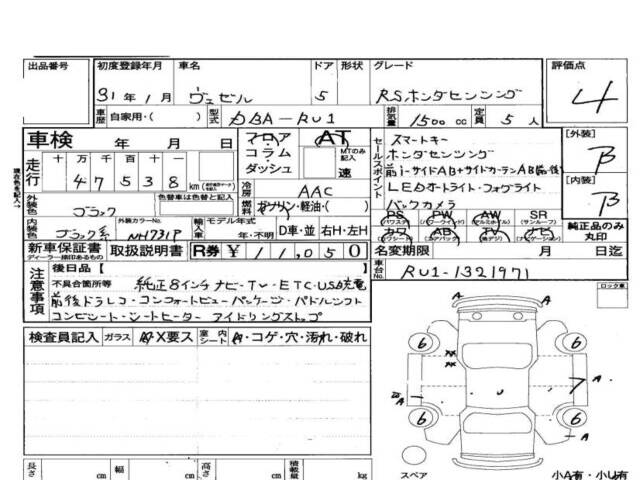 出品番号 初度登録年月 車名 ドア 形状 グレード 評価点
31年1月 ヴェゼル 5 RS.ホンダセンシング 4
車歴 自家用・( ) 型式 DBA-RU1 排気量 1500cc 定員 5人
車検 年 月 日 フロア AT セールスポイント スマートキー [外装]
十 万 千 百 十 コラム MTのみ記入 ホンダセンシング B
走行 47538 km ダッシュ 速 前i-サイドAB+サイドカーテンAB前後
現在色を記入→ 冷房 AAC LEDオートライト・フォグライト [内装]
外装色 ブラック 色替車は色替と記入 燃料 ガソリン・軽油・( ) バックカメラ B
内装色 ブラック系 外装カラーNo. NH731P 輸入車 モデル年式 年・不明 D車・並 右H・左H
PS PW AW SR
(パワステ) (パワーウインド) (サンルーフ)
カワ AB TV ナビ 純正品のみ
(エアバック) (ナビゲーション) 丸印
新車保証書 取扱説明書 R券 ¥11,050 名変期限 月 日迄
ディーラー捺印あるもの 車台No. RU1-1321971
注意事項 後日品 [ ] ロック車
不具合箇所等 純正8インチナビ・TV・ETC・USB充電
前後ドラレコ・コンフォートビューパッケージ・パドルシフト
コンビシート・シートヒーター アイドリングストップ
検査員記入 ガラス A・X要ス 室内シート A・コゲ・穴・汚れ・破れ
A
6 6
A
A
6 6
A
スペア 小A有・小U有
長さ cm 幅 cm 高さ cm 積載量 kg